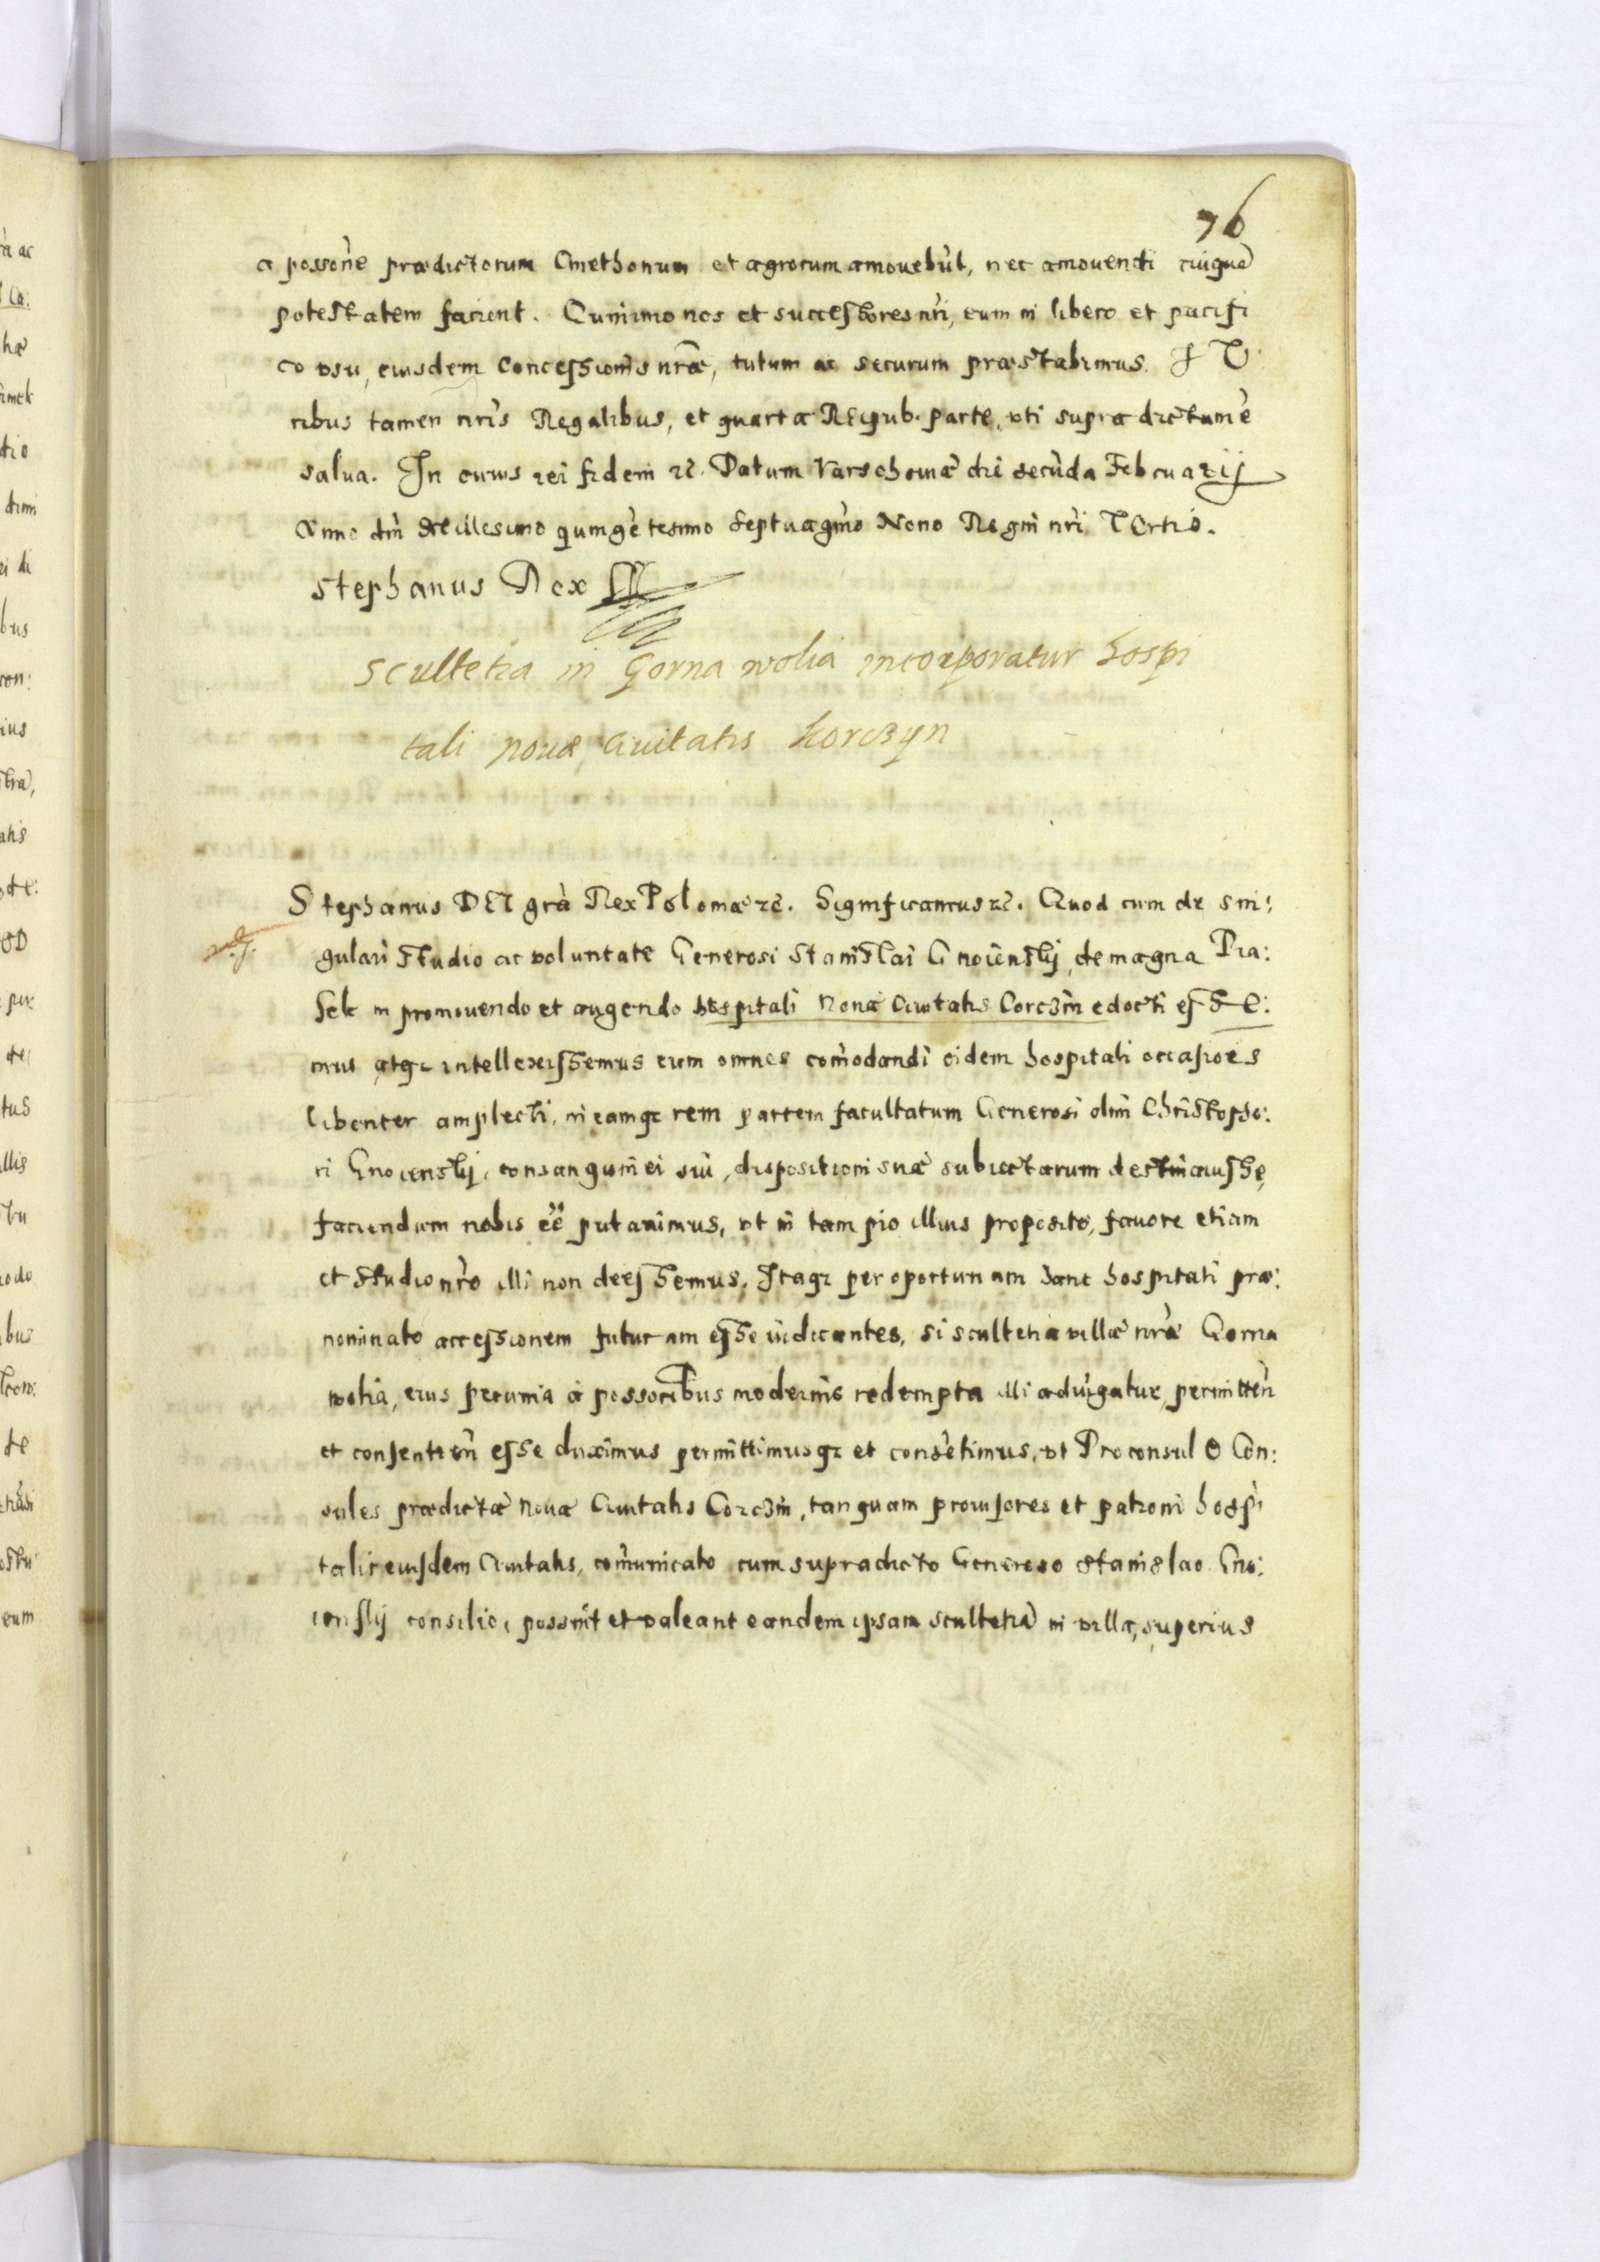 76
a possoñe prædictorum Cmethonum et agrorum amouebũt, nec amouendi cuiquã
potestatem facient. Quinimo nos et successores nr̃i, eum in libero et pacifi
co vsu, eiusdem Concessionis nr̃æ, tutum ac securum præstabimus. I V
ribus tamen nr̃is Regalibus, et quarta REipub. parte, vti supra dictum ẽ
salua. In cuius rei fidem ꝛc. Datum Varschouiæ die secũda Februarij
Anno dñi Millesimo quingẽtesimo septuagĩmo Nono Regni nr̃i TErtio.
Stephanus Rex
Scultetia in Gorna wolia incorporatur hospi
tali nouæ Ciuitatis Korczyn
Stephanus DEI grã Rex Poloniæ ꝛc. Significamus ꝛc. Quod cum de sin:
gulari studio ac voluntate Generosi Stanislai Gnoienskij, de magna
in promouendo et augendo hospitali Nouæ Ciuitatis Corczin edocti esse:
mus atqꝫ intellexissemus eum omnes com̃odandi eidem hospitali occasiões
libenter amplecti, in eamqꝫ rem partem facultatum Generosi olim Christopho:
ri Gnoienskij, consanguinei sui, dispositioni suæ subiectarum destinauisse,
faciendum nobis eẽ putauimus, vt in tam pio illius proposito, fauore etiam
et studio nr̃o illi non deessemus. Itaqꝫ peroportunam hanc hospitali præ:
nominato accessionem futuram esse iudicantes, si scultetia villæ nr̃æ Gorna
wolia, eius pecunia à possoribus modernis redempta illi adiũgatur, permitteñ
et consentieñ esse duximus permittimusqꝫ et consẽtimus, vt Proconsul & Con:
sules prædictæ Nouæ Ciuitatis Corczin, tanquam prouisores et patroni hospi
talis eiusdem Ciuitatis, com̃unicato cum supradicto Generoso Stanislao Gno:
ienskij consilio, possint et valeant eandem ipsam scultetiã in villa, superius